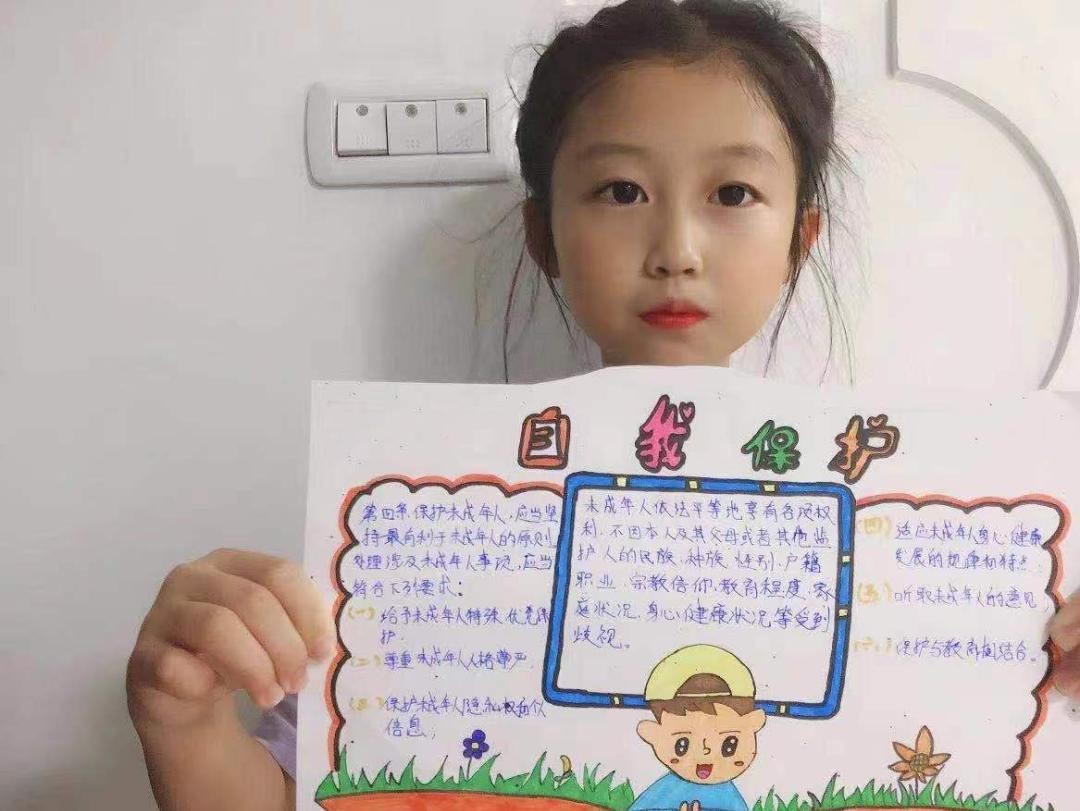 自我保护
第四条 保护未成年人,应当坚
持最有利于未成年人的原则
处理涉及未成年人事项,应当
符合下列要求:
(一) 给予未成年人特殊、优先保
护.
(二) 尊重未成年人人格尊严.
(三) 保护未成年人隐私权和个
信息;
未成年人依法平等地享有各项权
利,不因本人及其父母或者其他监
护人的民族、种族、性别、户籍
职业、宗教信仰、教育程度、家
庭状况、身心健康状况等受到
歧视。
(四) 适应未成年人身心健康
发展的规律和特点;
(五) 听取未成年人的意见;
(六) 保护与教育相结合。